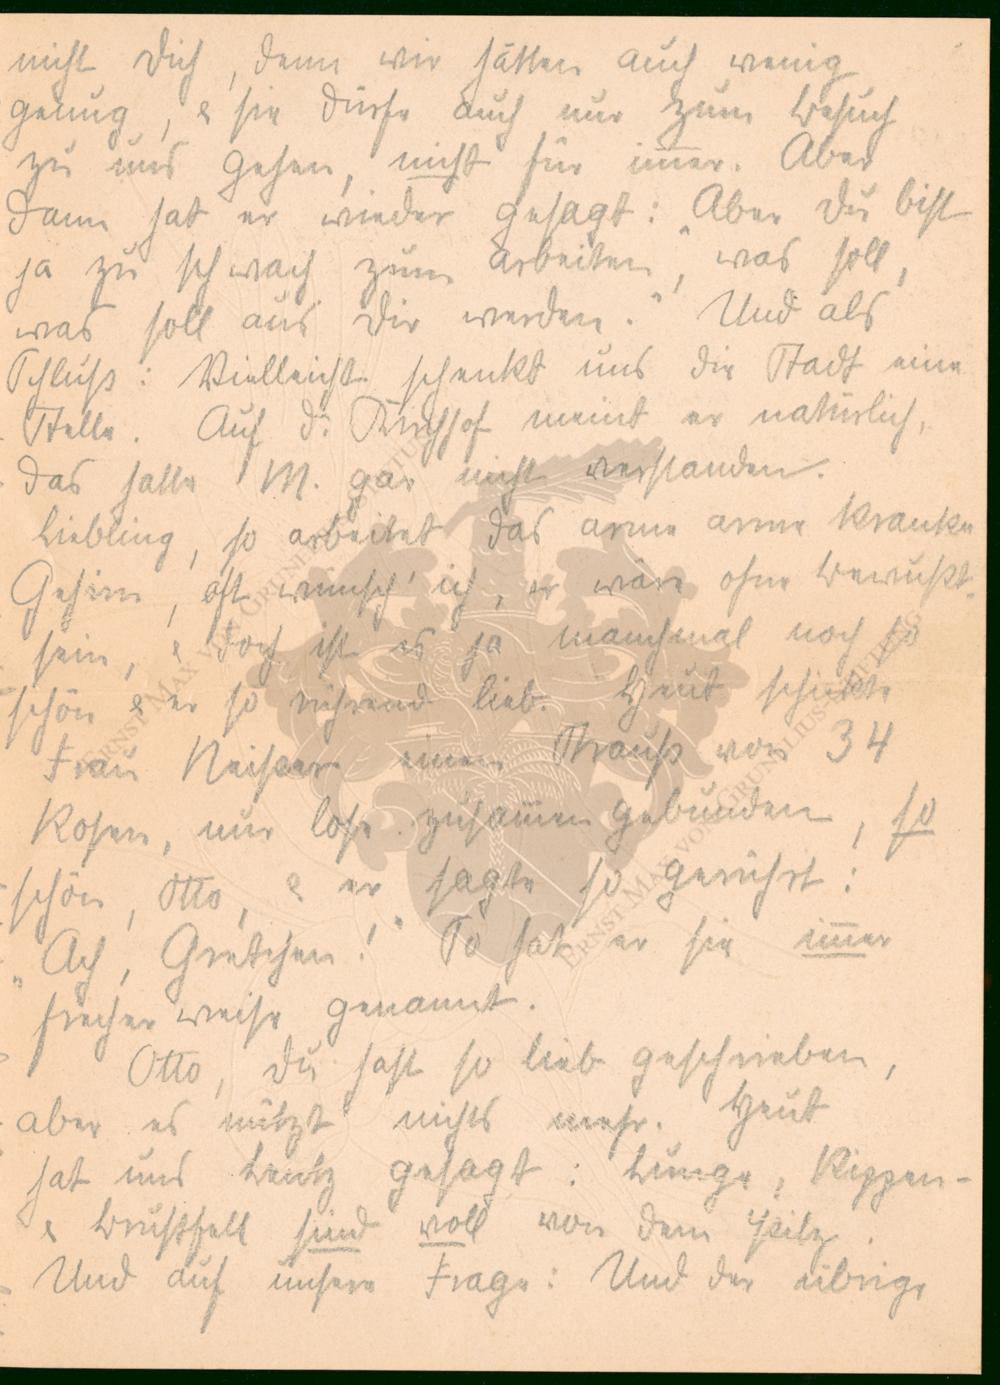 nicht Dich, denn wir hätten auch wenig
genug, & sie dürfe auch nur zum Besuch
zu uns gehen, nicht für im̅er. Aber
dann hat er wieder gesagt: "Aber Du bist
ja zu schwach zum arbeiten", was soll,
was soll aus Dir werden." Und als
Schluß: Vielleicht schenkt uns die Stadt eine
Stelle. Auf d. Kirchhof meint er natürlich,
das hatte M. gar nicht verstanden.
Liebling, so arbeitet das arme arme kranke
Gehirn, oft wünsch' ich, er wäre ohne Bewußt-
sein, & doch ist es ja manchmal noch so
schön & er so rührend lieb. Heut schickte
Frau Neisser einen Strauß von 34
Rosen, nur lose zusam̅en gebunden, so
schön, Otto, & er sagte so gerührt:
"Ach, Gretchen!" So hat er sie im̅er
frecher weise genannt.
Otto, Du hast so lieb geschrieben,
aber es nützt nichts mehr. Heut
hat uns gesagt: Lunge, Rippen-
& Brustfell sind voll von dem Pilz.
Und auf unsere Frage: Und der übrige
ERNST MAX VON GRUNELIUS-STIFTUNG
ERNST MAX VON GRUNELIUS-STIFTUNG